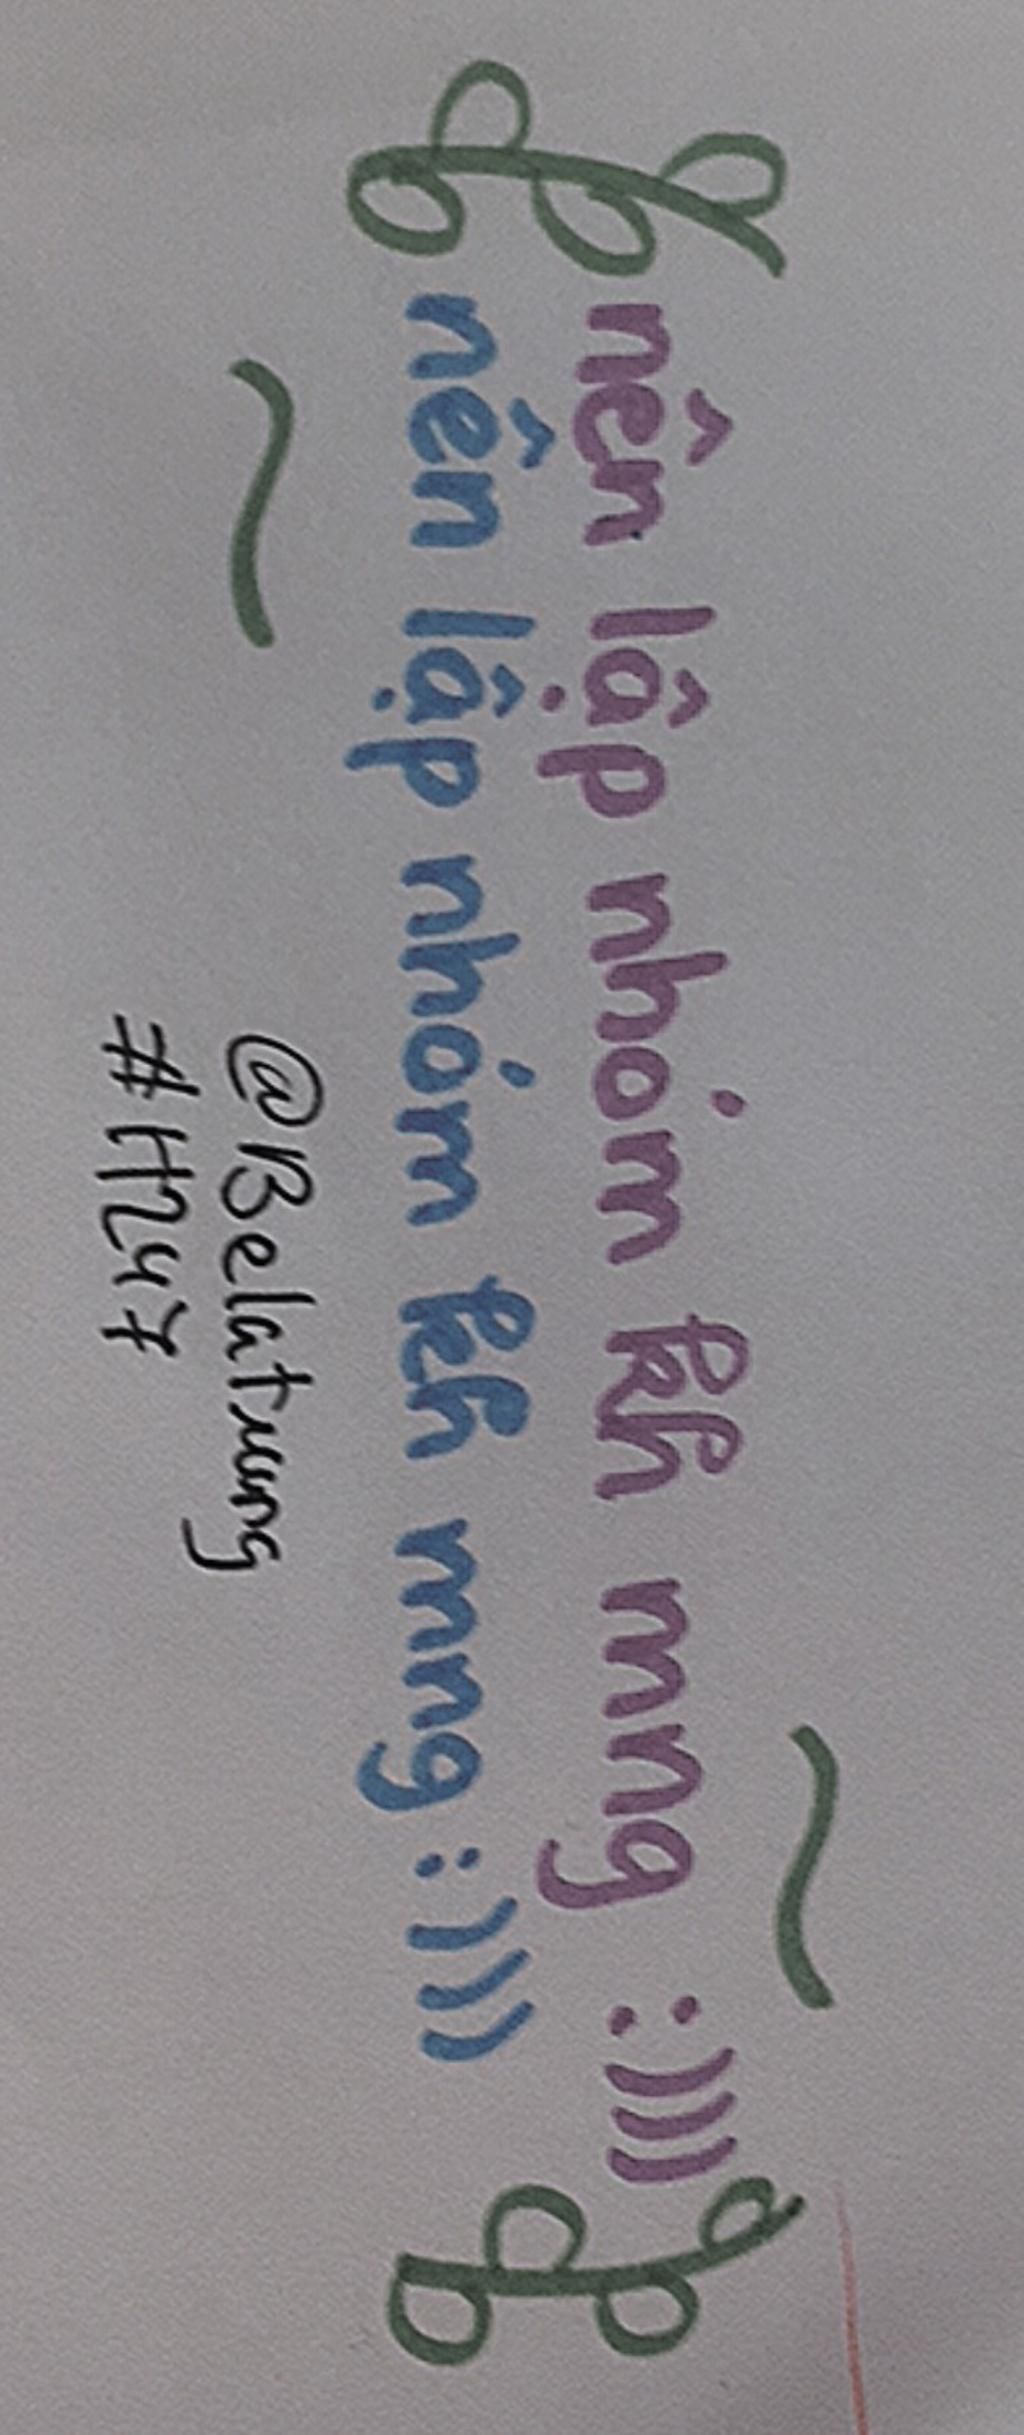 nên lập nhóm kh mng :)))
nên lập nhóm kh mng :)))
@Belatrung
#H247